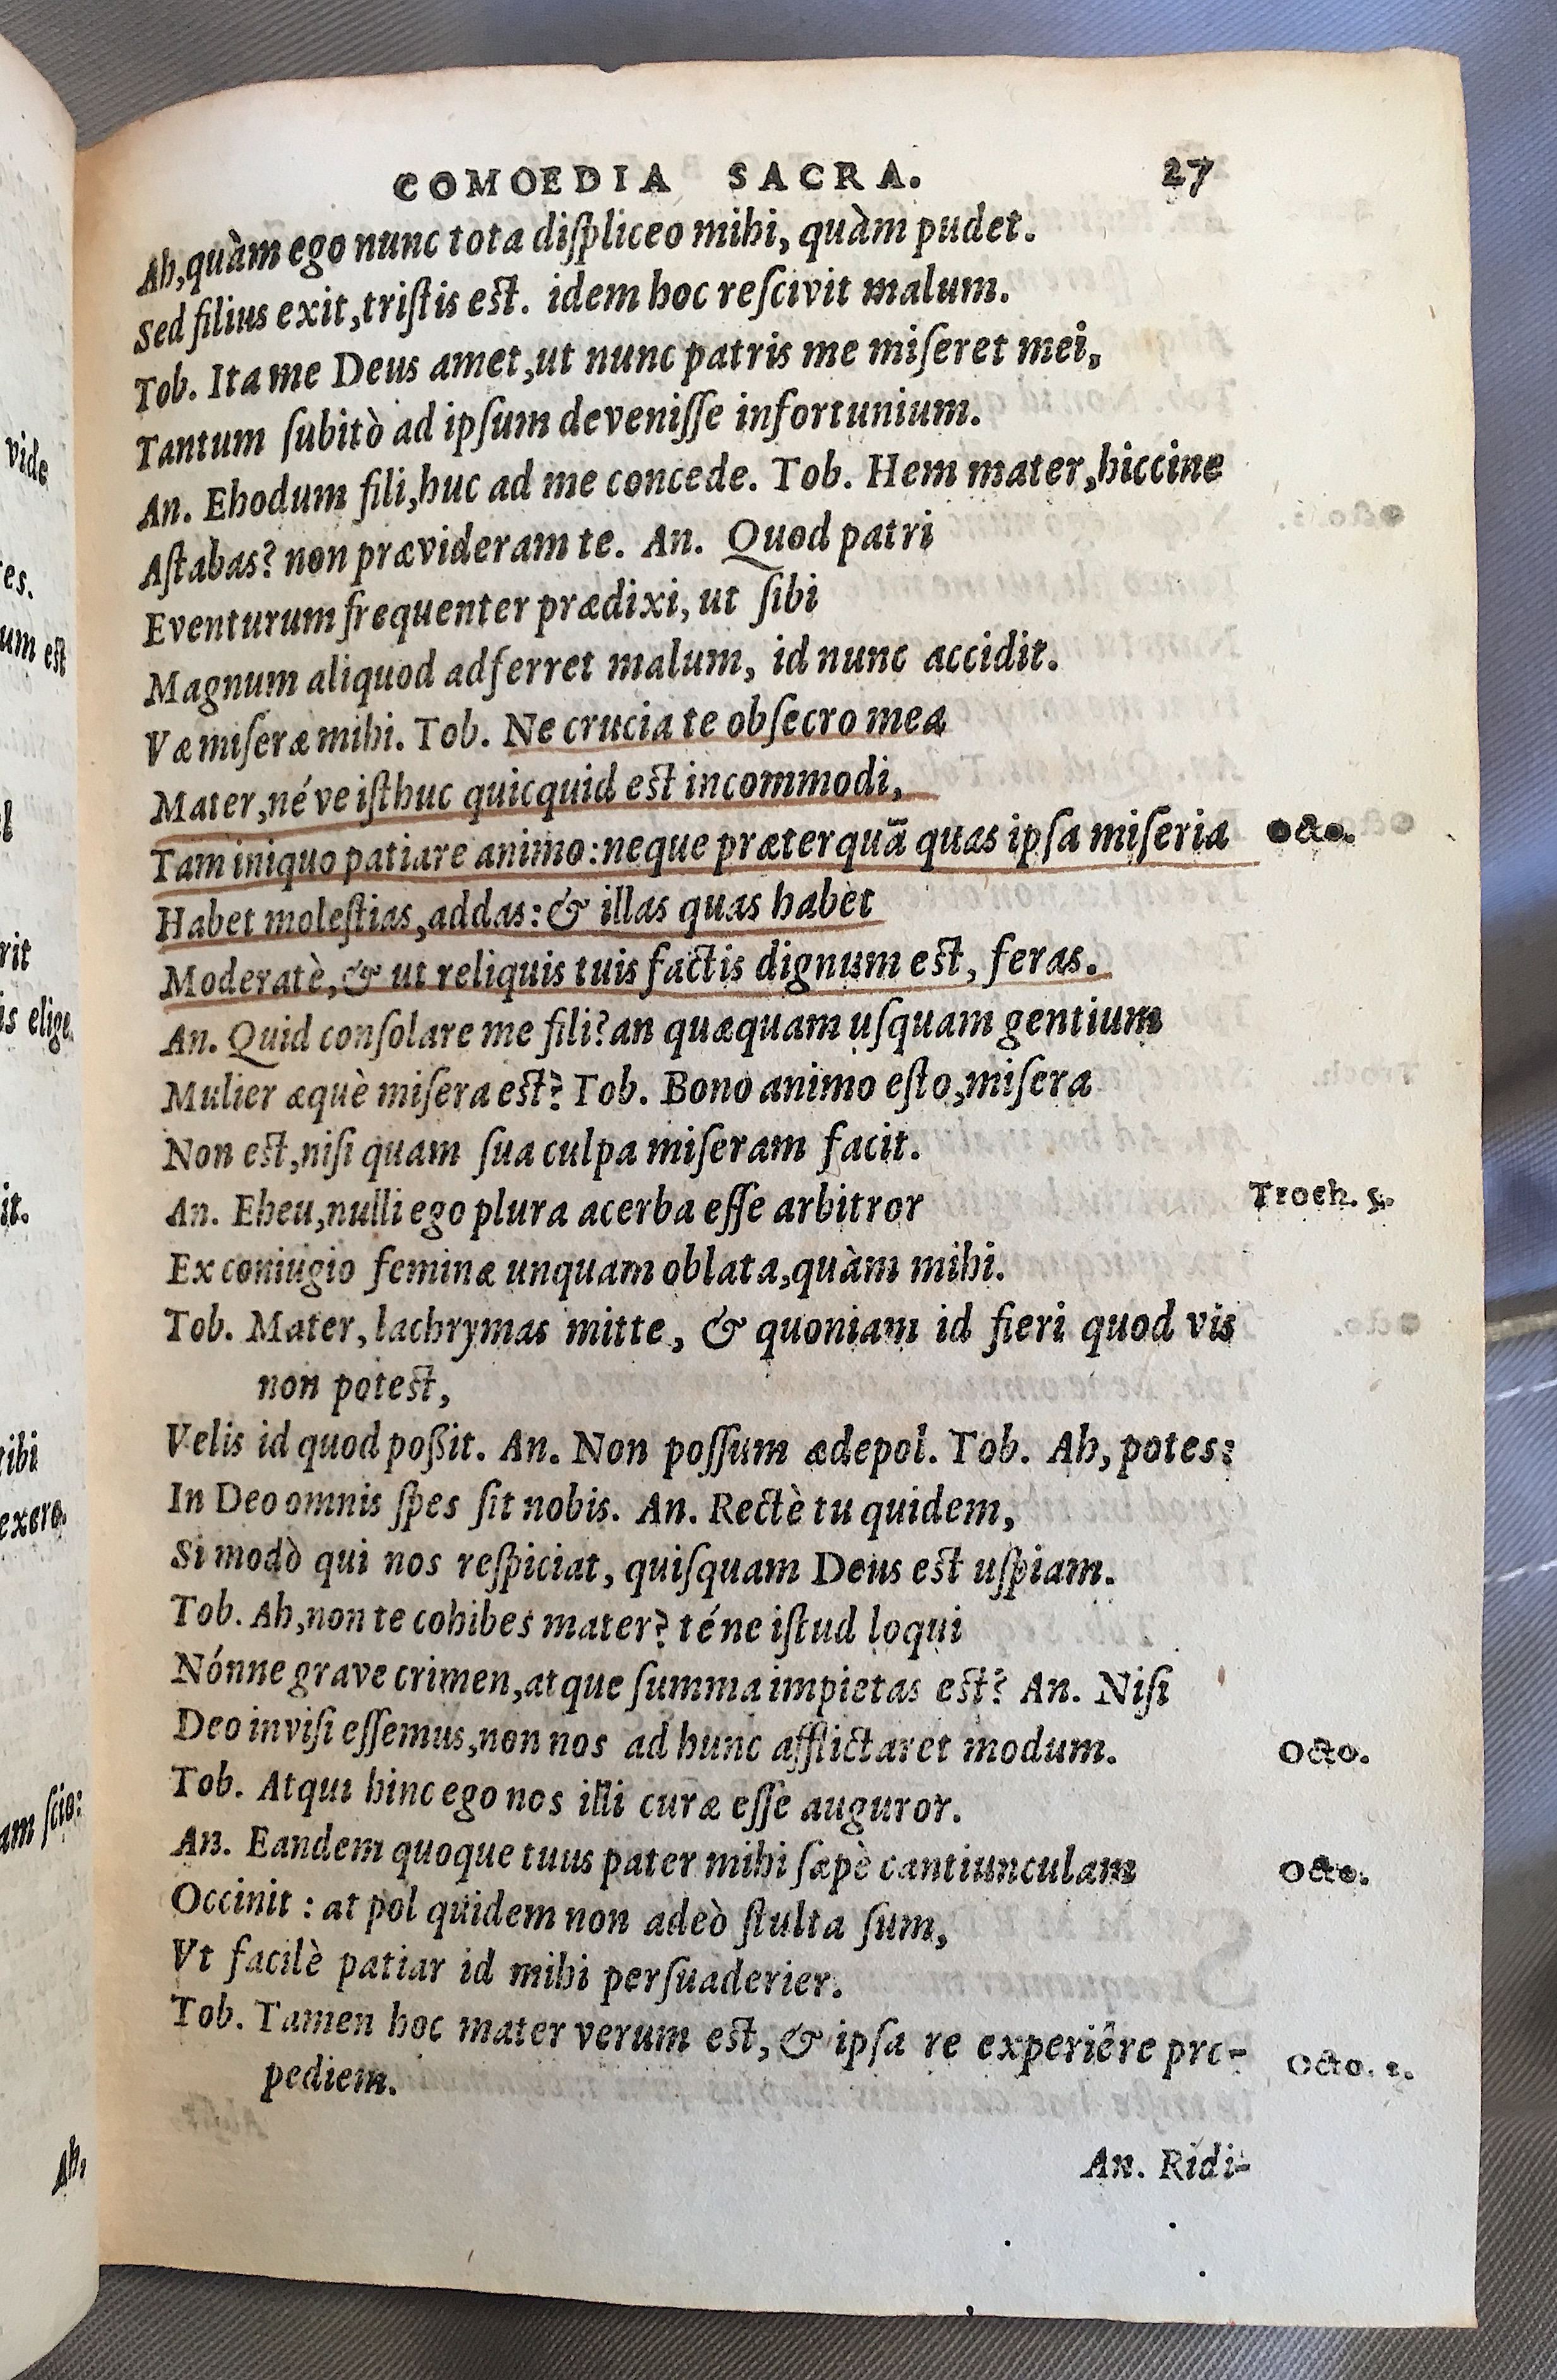 COMOEDIA SACRA. 27
Ah, quàm ego nunc tota diſpliceo mihi, quàm pudet.
Sed filius exit, triſtis eſt. idem hoc reſcivit malum.
Tob. Ita me Deus amet, ut nunc patris me miſeret mei,
Tantum ſubitò ad ipſum deveniſſe infortunium.
An. Ehodum fili, huc ad me concede. Tob. Hem mater, hiccine
Aſtabas? non prævideram te. An. Quod patri
Eventurum frequenter prædixi, ut ſibi
Magnum aliquod adferret malum, id nunc accidit.
Væ miſeræ mihi. Tob. Ne crucia te obſecro mea
Mater, néve iſthuc quicquid eſt incommodi,
Tam iniquo patiare animo: neque præterquā quas ipſa miſeria Octo.
Habet moleſtias, addas: & illas quas habet
Moderatè, & ut reliquis tuis factis dignum eſt, feras.
An. Quid conſolare me fili? an quæquam uſquam gentium
Mulier æquè miſera eſt? Tob. Bono animo eſto, miſera
Non eſt, niſi quam ſua culpa miſeram facit.
An. Eheu, nulli ego plura acerba eſſe arbitror Troch.
Ex coniugio feminæ unquam oblata, quàm mihi.
Tob. Mater, lachrymas mitte, & quoniam id fieri quod vis
non poteſt,
Velis id quod poßit. An. Non poſſum ædepol. Tob. Ah, potes:
In Deo omnis ſpes ſit nobis. An. Rectè tu quidem,
Si modò qui nos reſpiciat, quiſquam Deus eſt uſpiam.
Tob. Ah, non te cohibes mater? téne iſtud loqui
Nónne grave crimen, atque ſumma impietas eſt? An. Niſi
Deo inviſi eſſemus, non nos ad hunc afflictaret modum. Octo.
Tob. Atqui hinc ego nos illi curæ eſſe auguror.
An. Eandem quoque tuus pater mihi ſæpè cantiunculam Octo.
Occinit: at pol quidem non adeò ſtulta ſum,
Vt facilè patiar id mihi perſuaderier.
Tob. Tamen hoc mater verum eſt, & ipſa re experiêre pro- Octo.
pediem.
An. Ridi-
vide
es.
um eſt
rit
is elige
it.
tibi
am ſcio:
Ah,